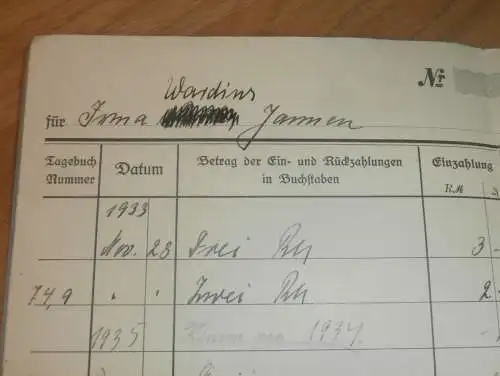 Nr
Wardins
für Irma Jannen
Tagebuch Nummer Datum Betrag der Ein- und Rückzahlungen in Buchstaben Einzahlung RM
1933
Nov. 23 Drei RM 3 -
749 " " Zwei RM 2 -
1935 1934.